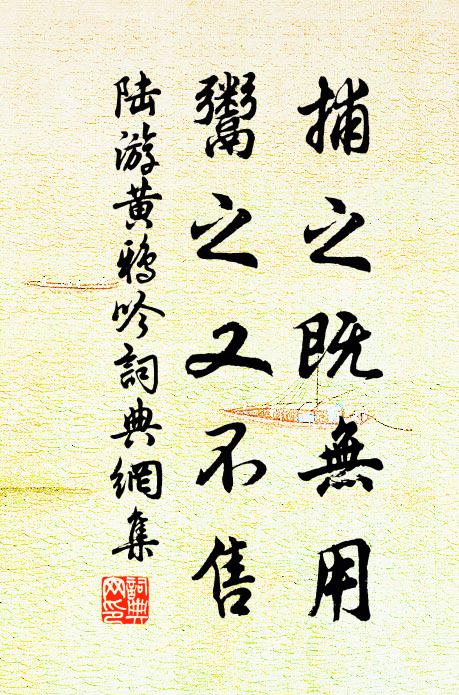 捕之既無用
鬻之又不售
陸游黄鴉吟詞典網集
詞典网印